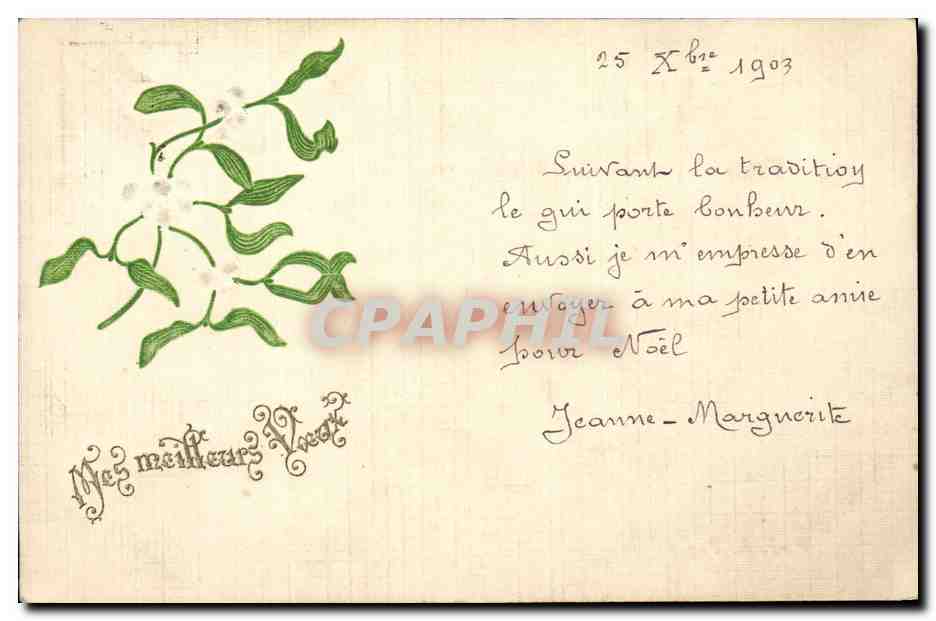 25 Xbre 1903
Suivant la tradition
le gui porte bonheur.
Aussi je m'empresse d'en
envoyer à ma petite amie
pour Noël
Jeanne-Marguerite
Mes meilleurs Voeux
CPAPHIL